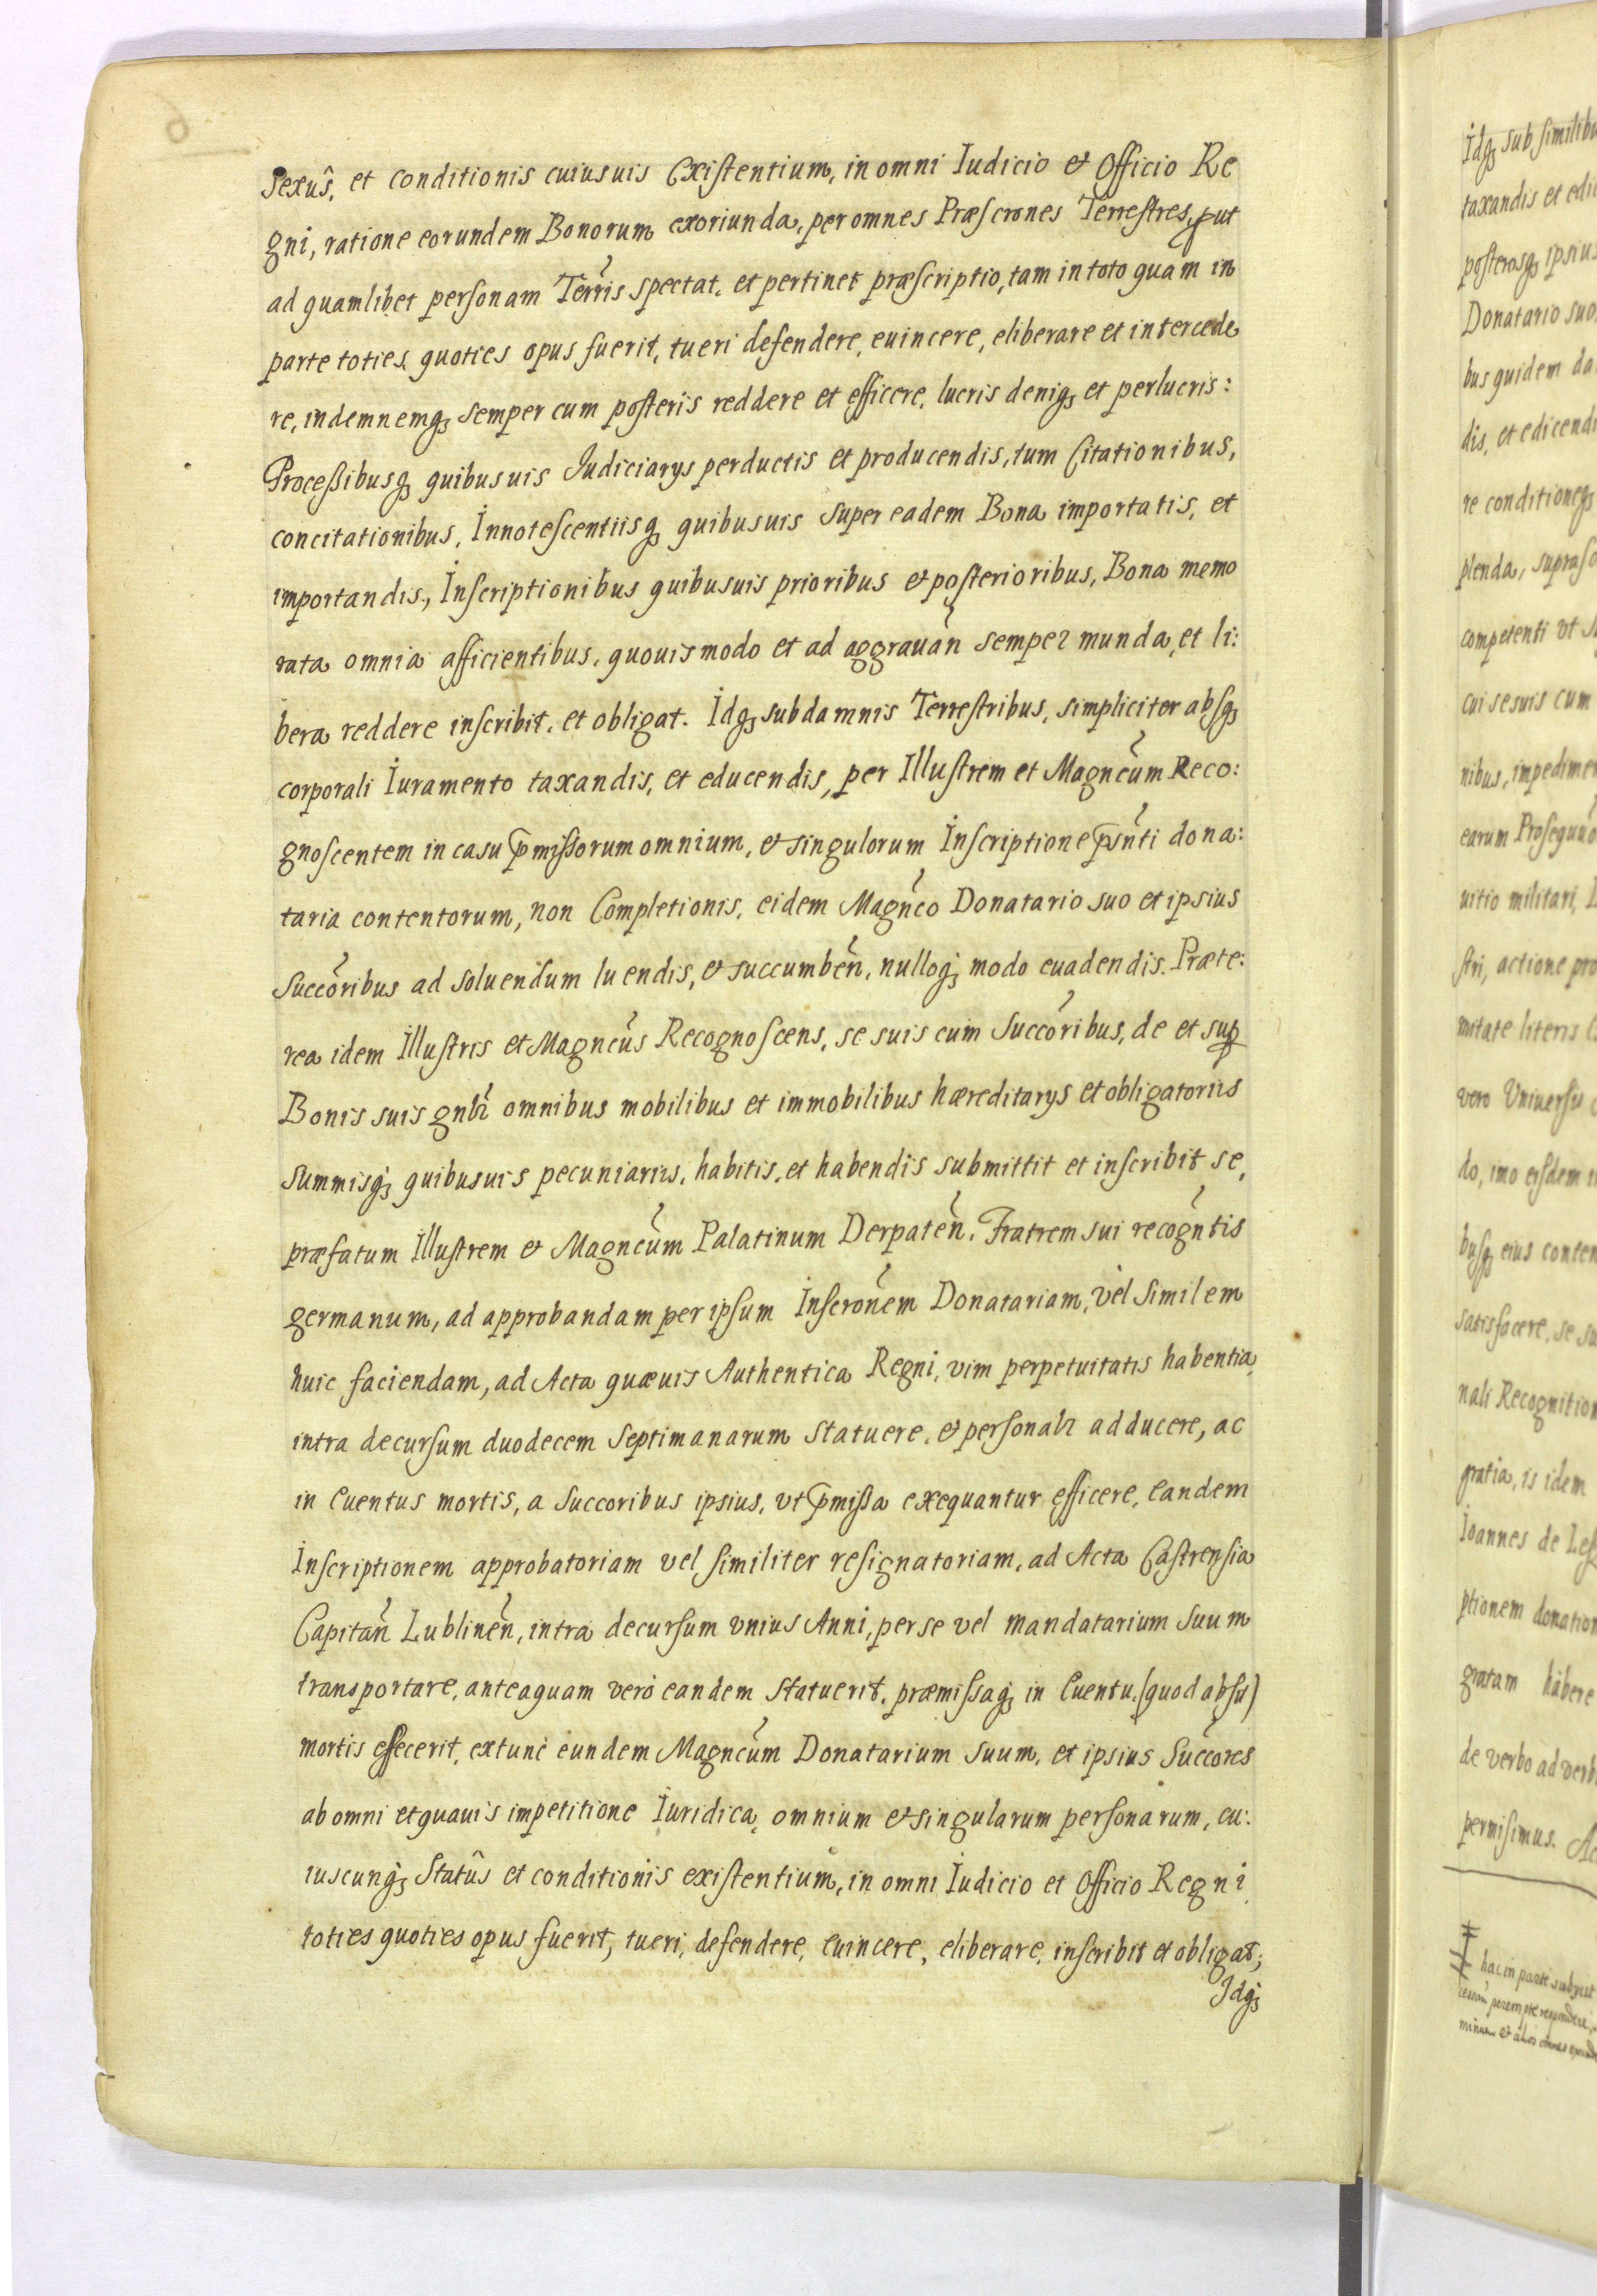 Sexûs, et conditionis cuiusuis Existentium, in omni Iudicio et Officio Re
gni, ratione eorundem Bonorum exoriunda, per omnes Præscrones Terrestres, put
ad quamlibet personam Terris spectat, et pertinet præscriptio, tam in toto quam in
parte toties quoties opus fuerit, tueri defendere, euincere, eliberare et intercede
re, indemnemq₃ semper cum posteris reddere et efficere, lucris deniq₃ et perlucris:
Processibusq₃ quibusuis Judiciarys perductis et producendis, tum Citationibus,
concitationibus, Innotescentiisq₃ quibusuis super eadem Bona importatis, et
importandis, Inscriptionibus quibusuis prioribus et posterioribus, Bona memo
rata omnia afficientibus, quouismodo et ad aggrauan̄ semper munda, et li:
bera reddere inscribit, et obligat. Idq₃ sub damnis Terrestribus, simpliciter absq₃
corporali Iuramento taxandis, et educendis, per Illustrem et Magncum Reco:
gnoscentem in casu p̄missorum omnium, et singulorum Inscriptione p̄snti dona:
taria contentorum, non Completionis, eidem Magnco Donatario suo et ipsius
Succoribus ad soluendum luendis, et succumben̄, nulloq₃ modo euadendis. Præte:
rea idem Illustris et Magncus Recognoscens, se suis cum Succoribus, de et sup
Bonis suis gnlr omnibus mobilibus et immobilibus hæreditarys et obligatoriis
Summisq₃ quibusuis pecuniariis, habitis, et habendis submittit et inscribit se,
præfatum Illustrem et Magncum Palatinum Derpaten̄. Fratrem sui recogntis
germanum, ad approbandam per ipsum Inscronem Donatariam, vel Similem
huic faciendam, ad Acta quæuis Authentica Regni, vim perpetuitatis habentia,
intra decursum duodecem Septimanarum statuere, et personalr adducere, ac
in Euentus mortis, a Succoribus ipsius, vt p̄missa exequantur efficere, eandem
Inscriptionem approbatoriam vel similiter resignatoriam, ad Acta Castrensia
Capitan̄ Lublinen̄, intra decursum vnius Anni, per se vel mandatarium suum
transportare, anteaquam vero eandem statuerit, præmissaq₃ in Euentu, (quod absit)
mortis effecerit, extunc eundem Magncum Donatarium suum, et ipsius Succores
ab omni et quauis impetitione Iuridica, omnium et singularum personarum, cu:
iuscunq₃ Statûs et conditionis existentium, in omni Iudicio et Officio Regni
toties quoties opus fuerit, tueri, defendere, euincere, eliberare, inscribit et obligat;
Idq₃
Idq₃ sub similibu
taxandis et edi
posterosq₃ ipsius
Donatario suo
bus quidem da
dis, et edicend
re conditioneq₃
plenda, suprasc
competenti vt
cui se suis cum
nibus, impedime
earum Prosequuo
uitio militari,
stri, actione pro
mitate literis
vero Vniuersis
do, imo eisdem
busq₃ eius conten
satisfacere, se su
nali Recognition
gratia, is idem
Ioannes de Les
ptionem donation
gratam habere
de verbo ad verb
permisimus. Ac
hac in parte subjicit